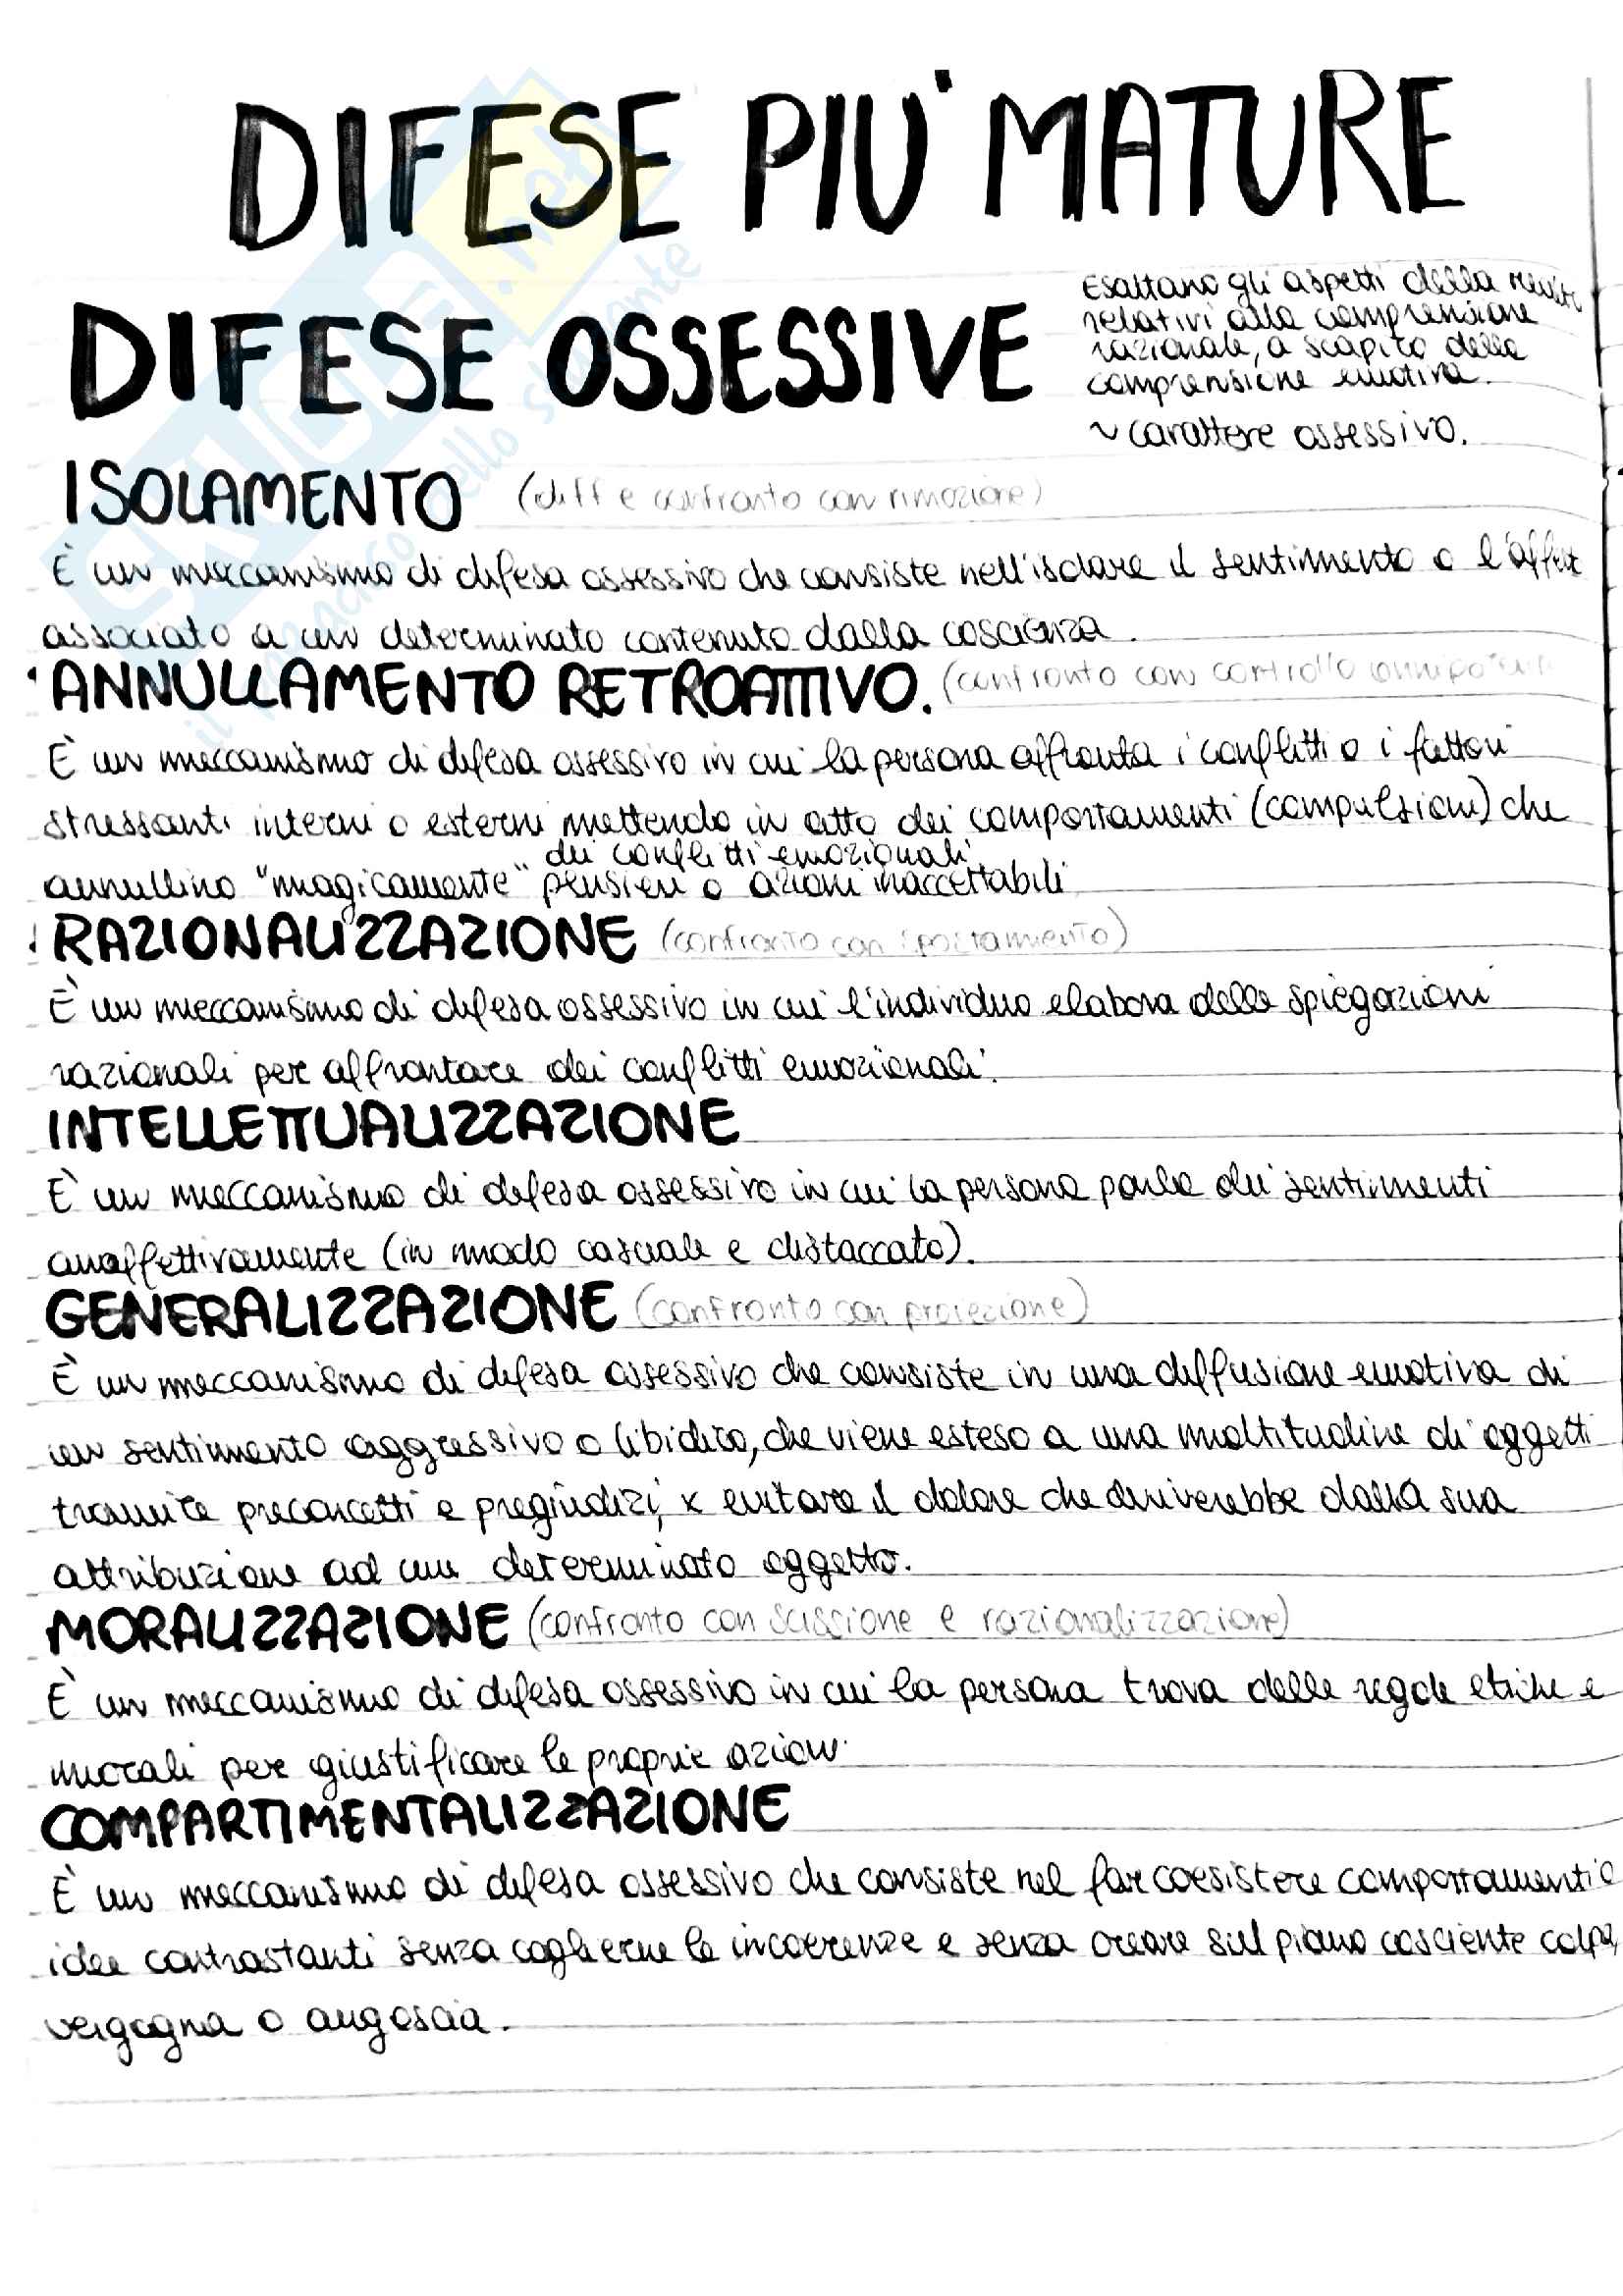 DIFESE PIU' MATURE
DIFESE OSSESSIVE
Esaltano gli aspetti della realtà
relativi alla comprensione
razionale, a scapito della
comprensione emotiva.
~ carattere ossessivo.
ISOLAMENTO (diff e confronto con rimozione)
È un meccanismo di difesa ossessivo che consiste nell'isolare il sentimento o l'affett
associato a un determinato contenuto dalla coscienza.
ANNULLAMENTO RETROATTIVO. (confronto con controllo onnipotente
È un meccanismo di difesa ossessivo in cui la persona affronta i conflitti o i fattori
stressanti interni o esterni mettendo in atto dei comportamenti (compulsioni) che
dei conflitti emozionali,
annullino "magicamente" pensieri o azioni inaccettabili
RAZIONALIZZAZIONE (confronto con spostamento)
È un meccanismo di difesa ossessivo in cui l'individuo elabora delle spiegazioni
razionali per affrontare dei conflitti emozionali.
INTELLETTUALIZZAZIONE
È un meccanismo di difesa ossessivo in cui la persona parla dei sentimenti
anaffettivamente (in modo casuale e distaccato).
GENERALIZZAZIONE (confronto con proiezione)
È un meccanismo di difesa ossessivo che consiste in una diffusione emotiva di
un sentimento aggressivo o libidico, che viene esteso a una moltitudine di oggetti
tramite preconcetti e pregiudizi, x evitare il dolore che deriverebbe dalla sua
attribuzione ad un determinato oggetto.
MORALIZZAZIONE (confronto con scissione e razionalizzazione)
È un meccanismo di difesa ossessivo in cui la persona trova delle regole etiche e
morali per giustificare le proprie azioni.
COMPARTIMENTALIZZAZIONE
È un meccanismo di difesa ossessivo che consiste nel far coesistere comportamenti e
idee contrastanti senza coglierne le incoerenze e senza creare sul piano cosciente colpa,
vergogna o angoscia.